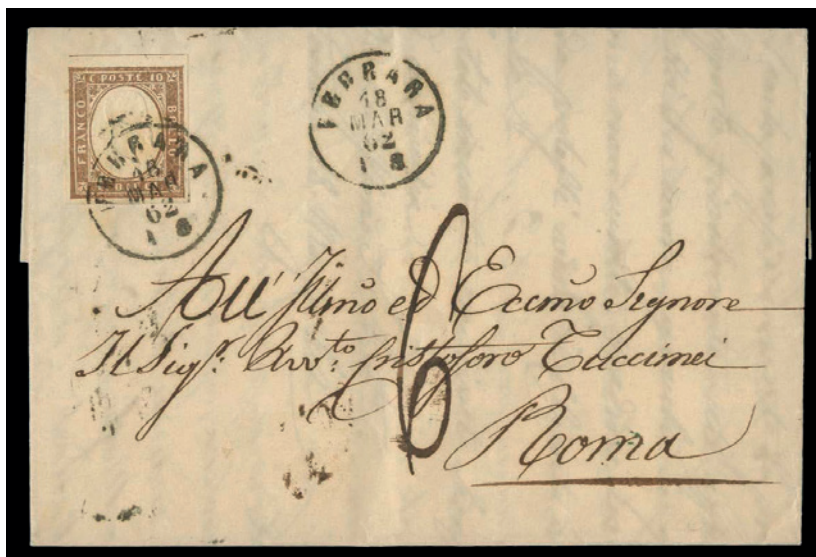 C. POSTE 10
FRANCO
FERRARA
18
MAR
62
1 S
FERRARA
18
MAR
62
1 S
6
All' Illmo ed Eccmo Signore
Il Sigr. Avvto. Cristoforo Tuccimei
Roma